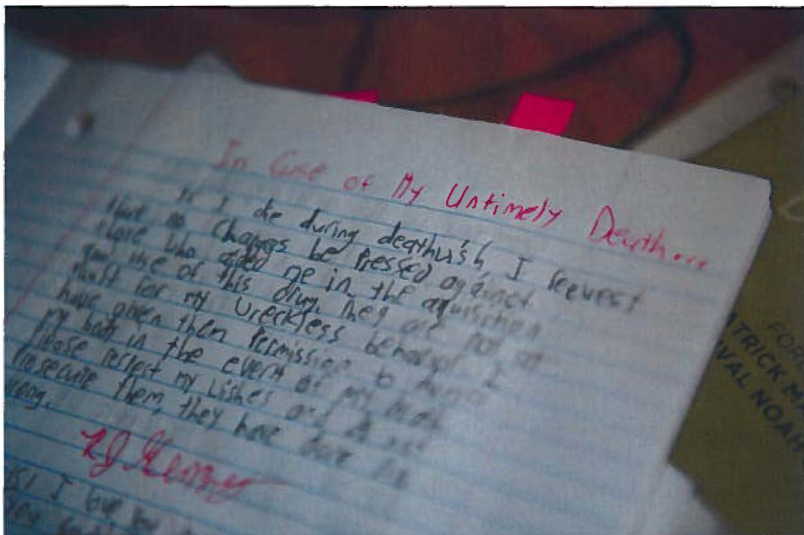 In Case of My Untimely Death...
If I die during deathwish, I request
that no charges be pressed against
those who aided me in the aquisition
and use of this drug. They are not at
fault for my wreckless behavior. I
have given them permission to
my body in the event of my death.
Please respect my wishes and do not
prosecute them, they have done no
wrong.
I
FOR
ATRICK M
IVAL NOAH